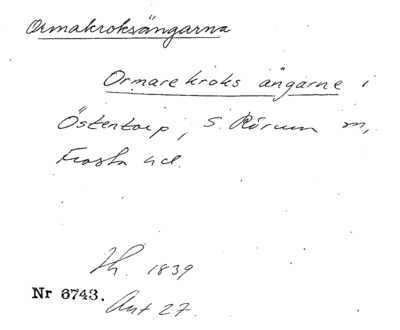 Ormakroksängarna
Ormarekroks ängarne i
Östentorp, S. Rörum m,
Frosta hd.
Lh. 1839
Nr 6743.
Ant 27.